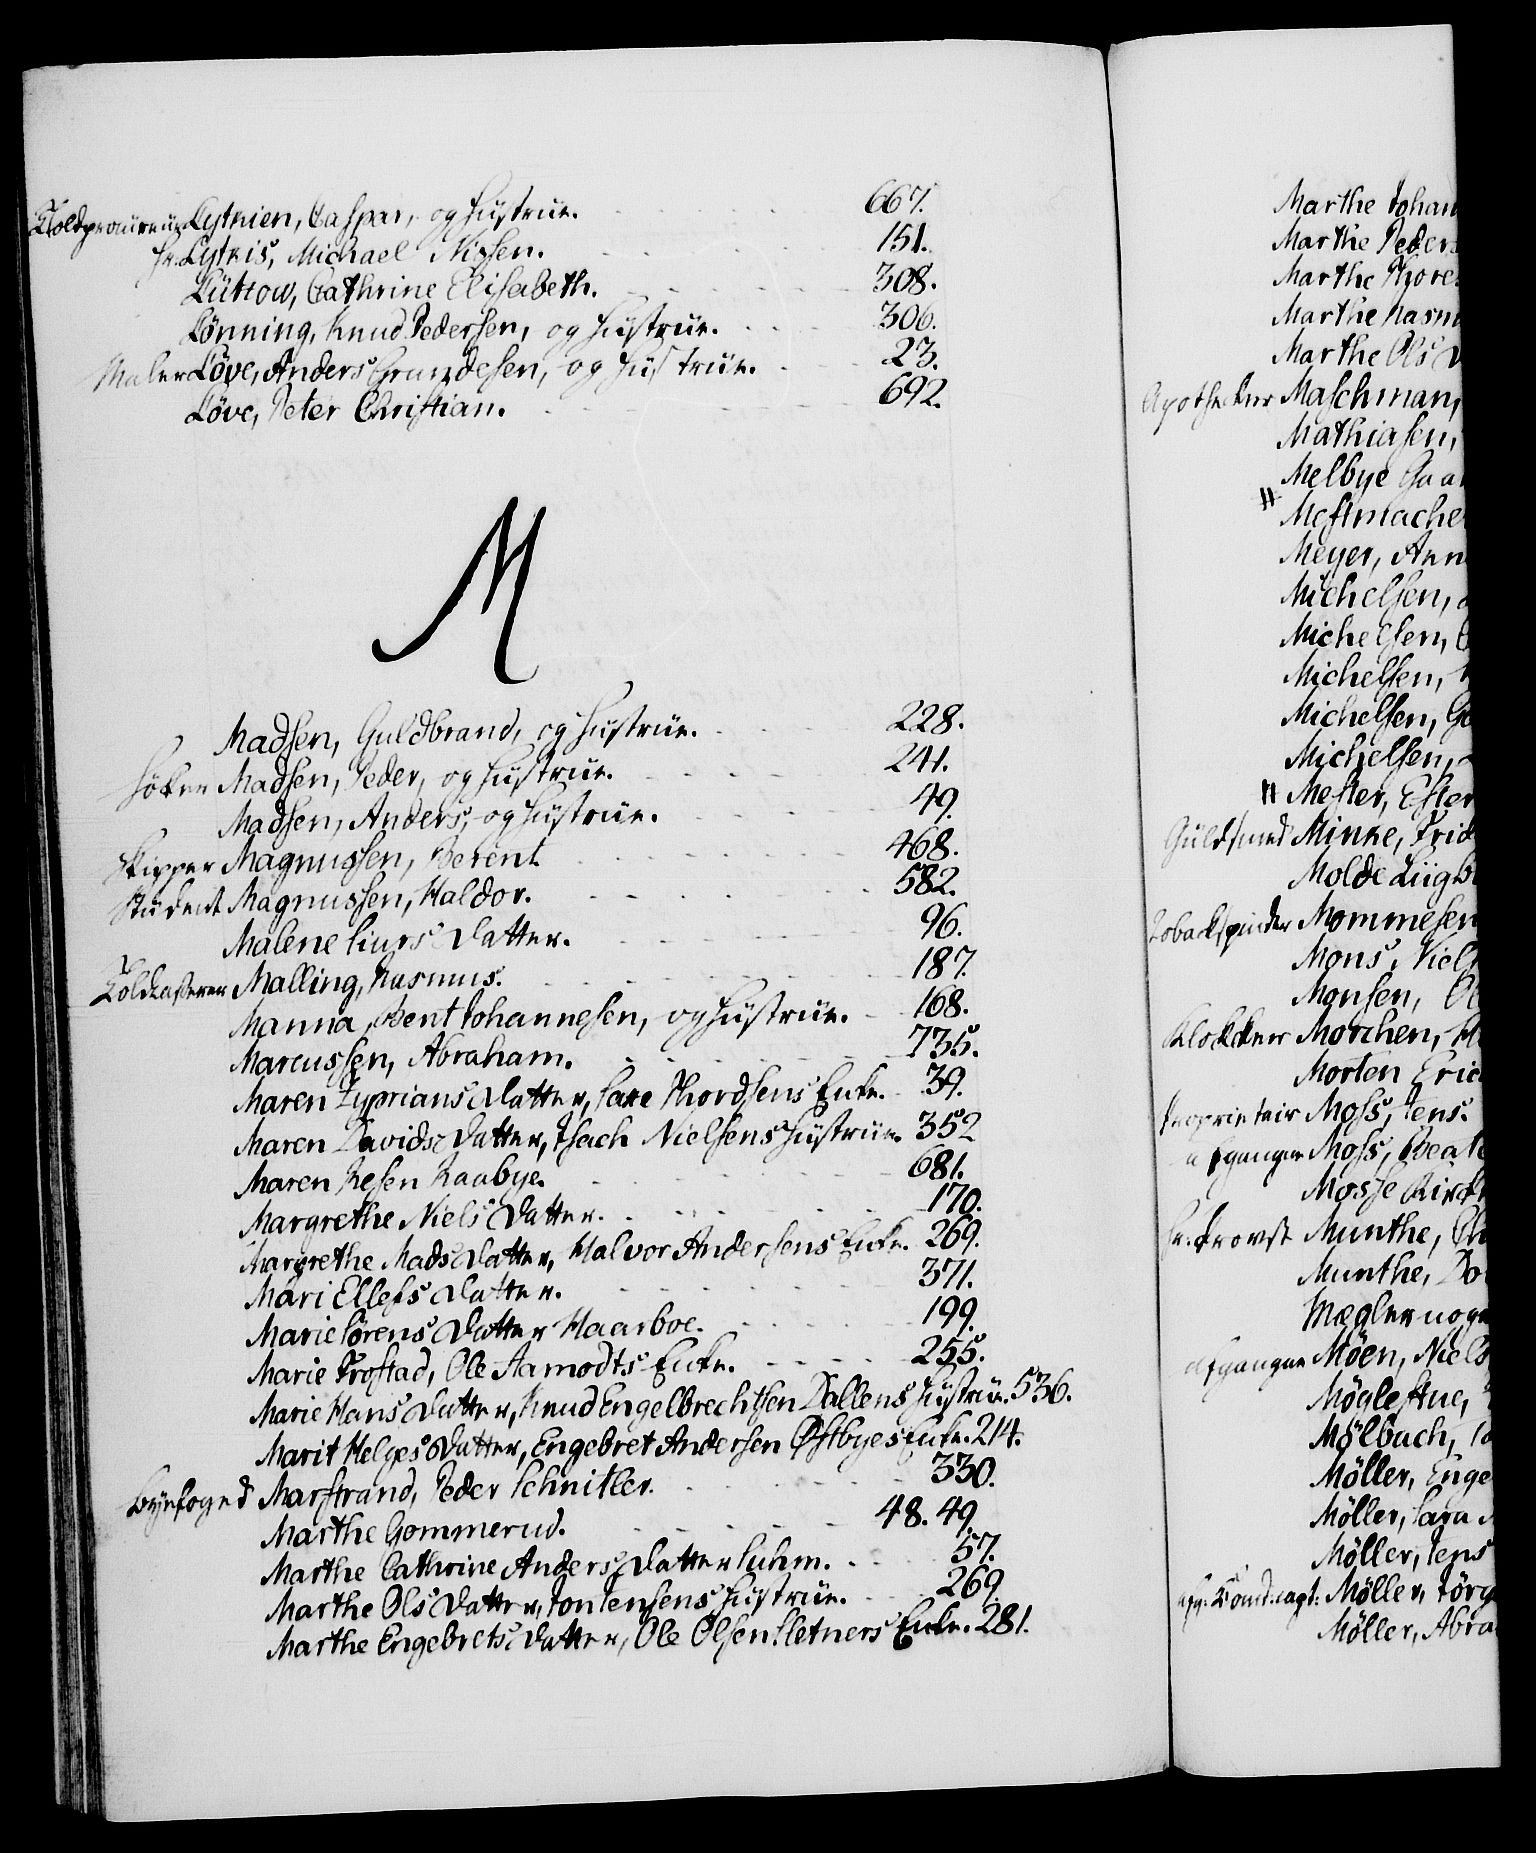 Toldprocureur Lytkien, Caspar, og Hustrue. 667.
Hr. Lytkis, Michael Nissen. 151.
Lüttow, Cathrine Elisabeth. 308.
Lönning, Knud Pedersen, og Hustrue. 306.
Maler Löve, Anders Grundesen, og Hustrue. 23.
Löve, Peter Christian. 692.
M
Madsen, Guldbrand, og Hustrue. 228.
Höker Madsen, Peder, og Hustrue. 241.
Madsen, Anders, og Hustrue. 49.
Skipper Magnussen, Berent 468.
Student Magnussen, Haldor. 582.
Malene Siurs Datter. 96.
Toldcasserer Malling, Rasmus. 187.
Manna, Bent Johannesen, og Hustrue. 168.
Marcussen, Abraham. 735.
Maren Zyprians Datter, Thordsens Enke. 39.
Maren Davids Datter, Isach Nielsens Hustrue. 352
Maren Resen Raabye. 681.
Margrethe Niels Datter. 170.
Margrethe Mads Datter, Halvor Andersens Enke. 269.
Mari Ellefs Datter. 371.
Marie Sörens Datter Haarboe. 199.
Marie Trostad, Ole Aamodts Enke. 255.
Marie Hans Datter, Knud Engelbrechtsen Dallens Hustrue. 536.
Marit Helges Datter, Engebret Andersen Östbyes Enke. 214.
Byefoged Marstrand, Peder Schnitler. 330.
Marthe Gommerud. 48. 49.
Marthe Cathrine Anders Datter Suhm. 57.
Marthe Ols Datter, Jon Jensens Hustrue. 269.
Marthe Engebrets Datter, Ole Olsen Sletners Enke. 281.
Marthe Johan
Marthe Peders
Marthe
Marthe Rasm
Marthe Ols D
Apothecker Maschman,
Mathiasen,
Melbye Gaar
Mestmache
Meyer, Ann
Michelsen,
Michelsen,
Michelsen,
Michelsen, Ge
Michelsen,
Mester, Ester
Guldsmed Minke, Frid
Molde
Tobackspinder Mommesen
Mons, Niels
Monsen, Ol
Klokker Morchen,
Morten Eric
Proprietair Moss, Jens.
afgangne Moss, Beate
Mosse Kirck
Hr. Provst Munthe, Ch
Munthe, Do
Mægler
afgangne Möen, Niels
Möglestue,
Mölbach,
Möller, Enge
Möller, Sara
Möller, Jens
Möller, Jörg
Möller, Abra